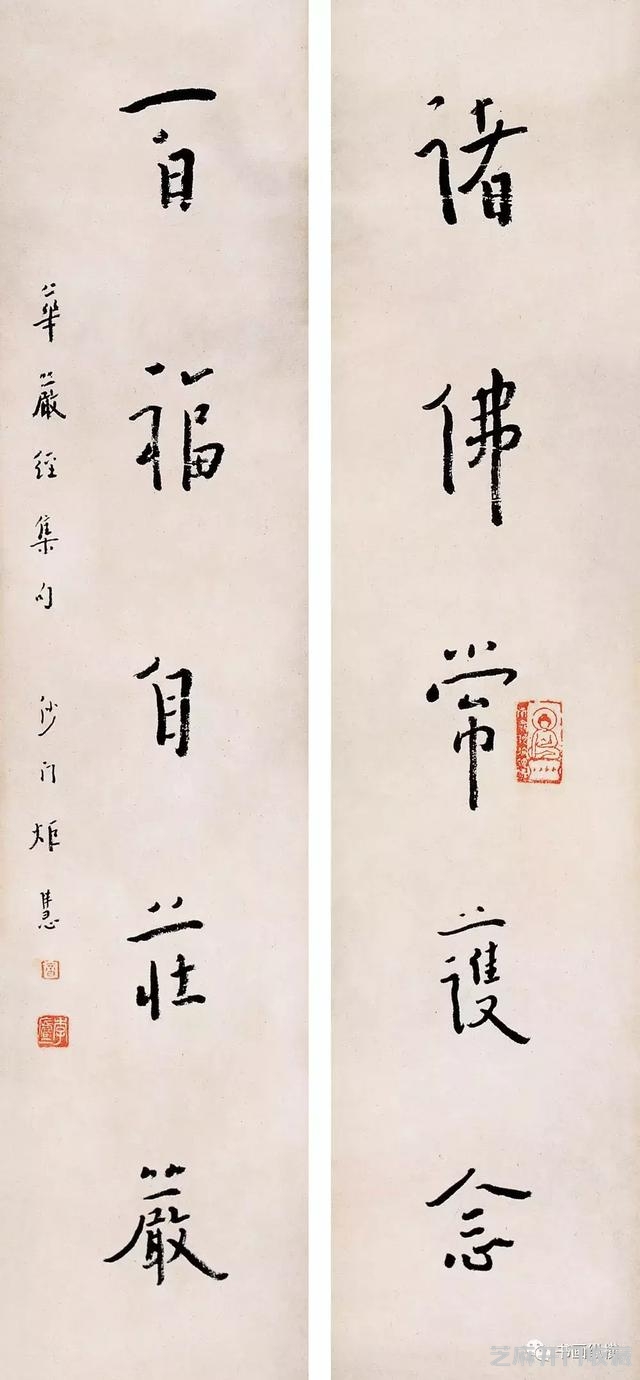 諸佛常護念
百福自莊嚴
華嚴經集句 沙門炬慧
书画纵横